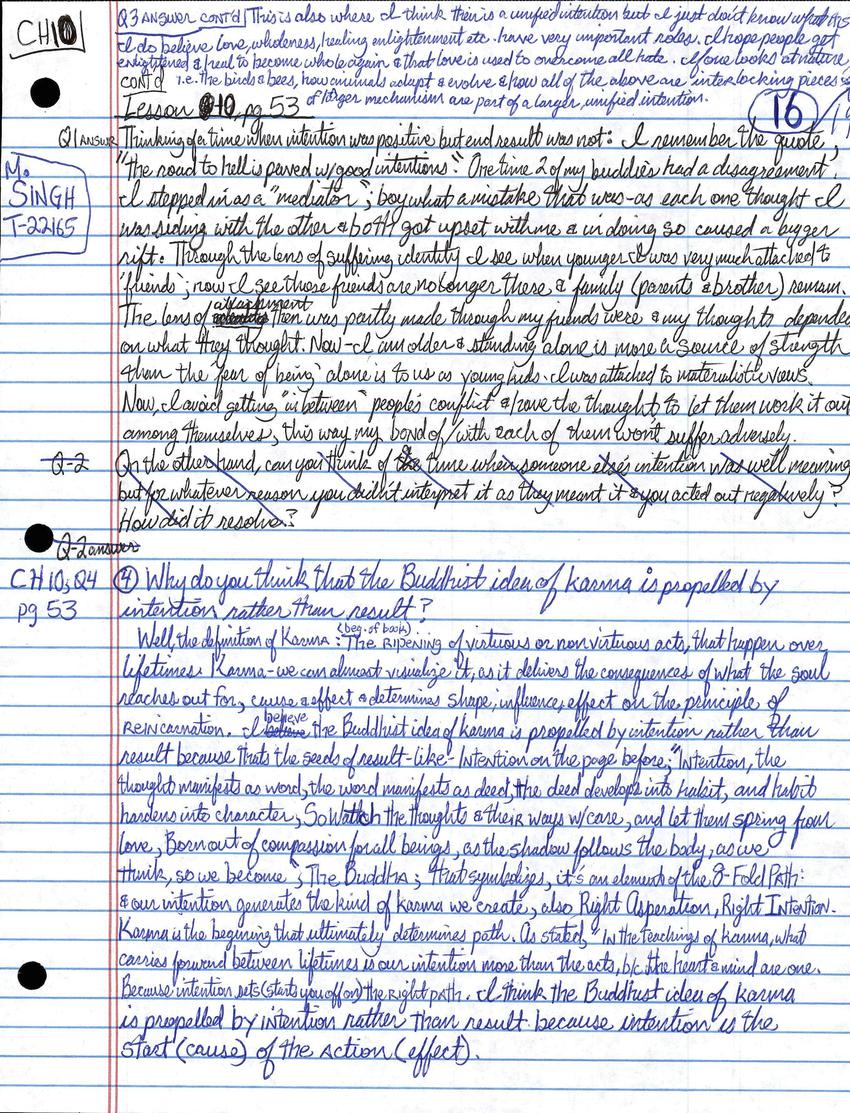 CH10
Q3 ANSWER CONT'D/ This is also where I think their is a unified intention but I just don't know what it is
I do believe love, wholeness, healing enlightenment etc. have very important roles. I hope people get
enlightened & heal to become whole again & that love is used to overcome all hate. If one looks at nature,
CONT'D i.e. the birds & bees, how animals adapt & evolve & how all of the above are interlocking pieces
of larger mechanism are part of a larger, unified intention.
Lesson 10, pg 53
16
Q1 ANSWER Thinking of a time when intention was positive but end result was not: I remember the quote,
"the road to hell is paved w/good intentions." One time 2 of my buddies had a disagreement.
I stepped in as a "mediator"; boy what a mistake that was-as each one thought I
was siding with the other & both got upset with me & in doing so caused a bigger
rift. Through the lens of suffering identity I see when younger I was very much attached to
'friends'; now I see those friends are no longer there & family (parents & brother) remain.
The lens of attachment then was partly made through my friends were & my thoughts depended
on what they thought. Now-I am older & standing alone is more a source of strength
than the 'fear of being' alone is to us as young kids. I was attached to materialistic views.
Now, I avoid getting "in between" people's conflict & have the thoughts to let them work it out
among themselves, this way my bond of/with each of them won't suffer adversely.
M.
SINGH
T-22165
Q-2 On the other hand, can you think of time when someone else's intention was well meaning
but for whatever reason you didn't interpret it as they meant it & you acted out negatively?
How did it resolve?
Q-2 answer
CH 10, Q4
pg 53
④ Why do you think that the Buddhist idea of karma is propelled by
intention rather than result?
Well, the definition of Karma (beg. of book): The RIPENING of virtuous or nonvirtuous acts, that happen over
lifetimes. Karma-we can almost visualize it, as it delivers the consequences of what the soul
reaches out for, cause & effect & determines shape, influence, effect on the principle of
REINCARNATION. I believe the Buddhist idea of karma is propelled by intention rather than
result because thats the seeds of result-like-Intention on the page before; "Intention, the
thought manifests as word, the word manifests as deed, the deed develops into habit, and habit
hardens into character, So Watch the thoughts & their ways w/care, and let them spring from
love, Born out of compassion for all beings, as the shadow follows the body, as we
think, so we become"; The BUDDHA; that symbolizes, it's an element of the 8-Fold PATH:
& our intention generates the kind of karma we create, also Right Asperation, Right INTENTION.
Karma is the begining that ultimately determines path. As stated, "In the teachings of karma, what
carries forward between lifetimes is our intention more than the acts, b/c the heart & mind are one.
Because intention sets (starts you off on) the right path. I think the Buddhist idea of karma
is propelled by intention rather than result because intention is the
start (cause) of the ACTION (effect).